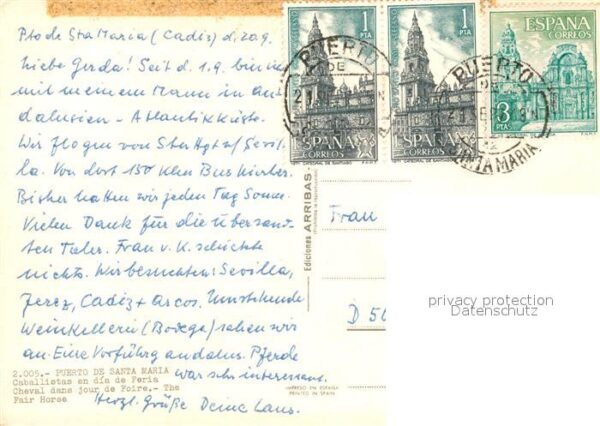 Pto de Sta Maria (Cadiz) d. 20.9.
Liebe Gerda! Seit d. 1.9. bin ich
mit meinem Mann in An-
dalusien - Atlantikküste.
Wir flogen von Stuttgt n/ Sevil-
la. Von dort 150 Klm Bus hierher.
Bisher hatten wir jeden Tag Sonne.
Vielen Dank für die übersand-
ten Taler. Frau v. K. schickte
nichts. Wir besuchten: Sevilla,
Jerez, Cadiz + Arcos. Umstehende
Weinkellerei (Bodega) sahen wir
an. Eine Vorführg andalus. Pferde
war sehr interessant.
Herzl. Grüße Deine
2.005.- PUERTO DE SANTA MARIA
Caballistas en día de Feria
Cheval dans jour de Foire.- The
Fair Horse
Ediciones ARRIBAS
IMPRESO EN ESPAÑA
PRINTED IN SPAIN
1 PTA
ESPAÑA
CORREOS
1 PTA
ESPAÑA
CORREOS
ESPAÑA
CORREOS
3 PTAS
PUERTO DE
PUERTO DE
SANTA MARIA
Frau
D 50
privacy protection
Datenschutz